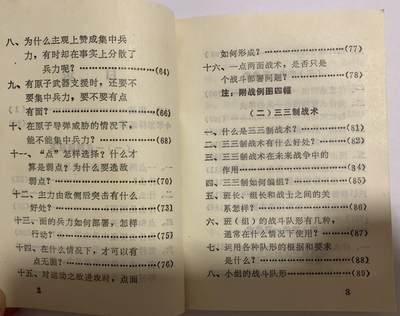 八、为什么主观上赞成集中兵
力，有时却在事实上分散了
兵力呢？……………………(64)
九、有原子武器支援时，还要不
要集中兵力，要不要有点
有面？………………………(66)
十、在原子导弹威胁的情况下，
能不能集中兵力？…………(68)
十一、“点”怎样选择？什么才
算是弱点？为什么要选敌
弱点？………………………(70)
十二、主力由敌侧后突击有什么
好处？………………………(73)
十三、面的兵力如何部署，怎样
行动？………………………(75)
十四、在什么情况下，才可以有
点无面？……………………(76)
十五、对运动之敌进攻时，点面
2
如何形成？…………………(77)
十六、一点两面战术，是否只是
个战斗部署问题？…………(78)
注：附战例图四幅
（二）三三制战术
一、什么是三三制战术？………(81)
二、三三制战术有什么好处？…(82)
三、三三制战术在未来战争中的
作用……………………………(84)
四、三三制如何编组？…………(85)
五、班长、组长和战士之间的关
系怎样？………………………(86)
六、班（组）的战斗队形有几种，
通常在什么情况下使用？……(87)
七、运用各种队形的根据和要求
是什么？………………………(88)
八、小组的战斗队形……………(89)
3